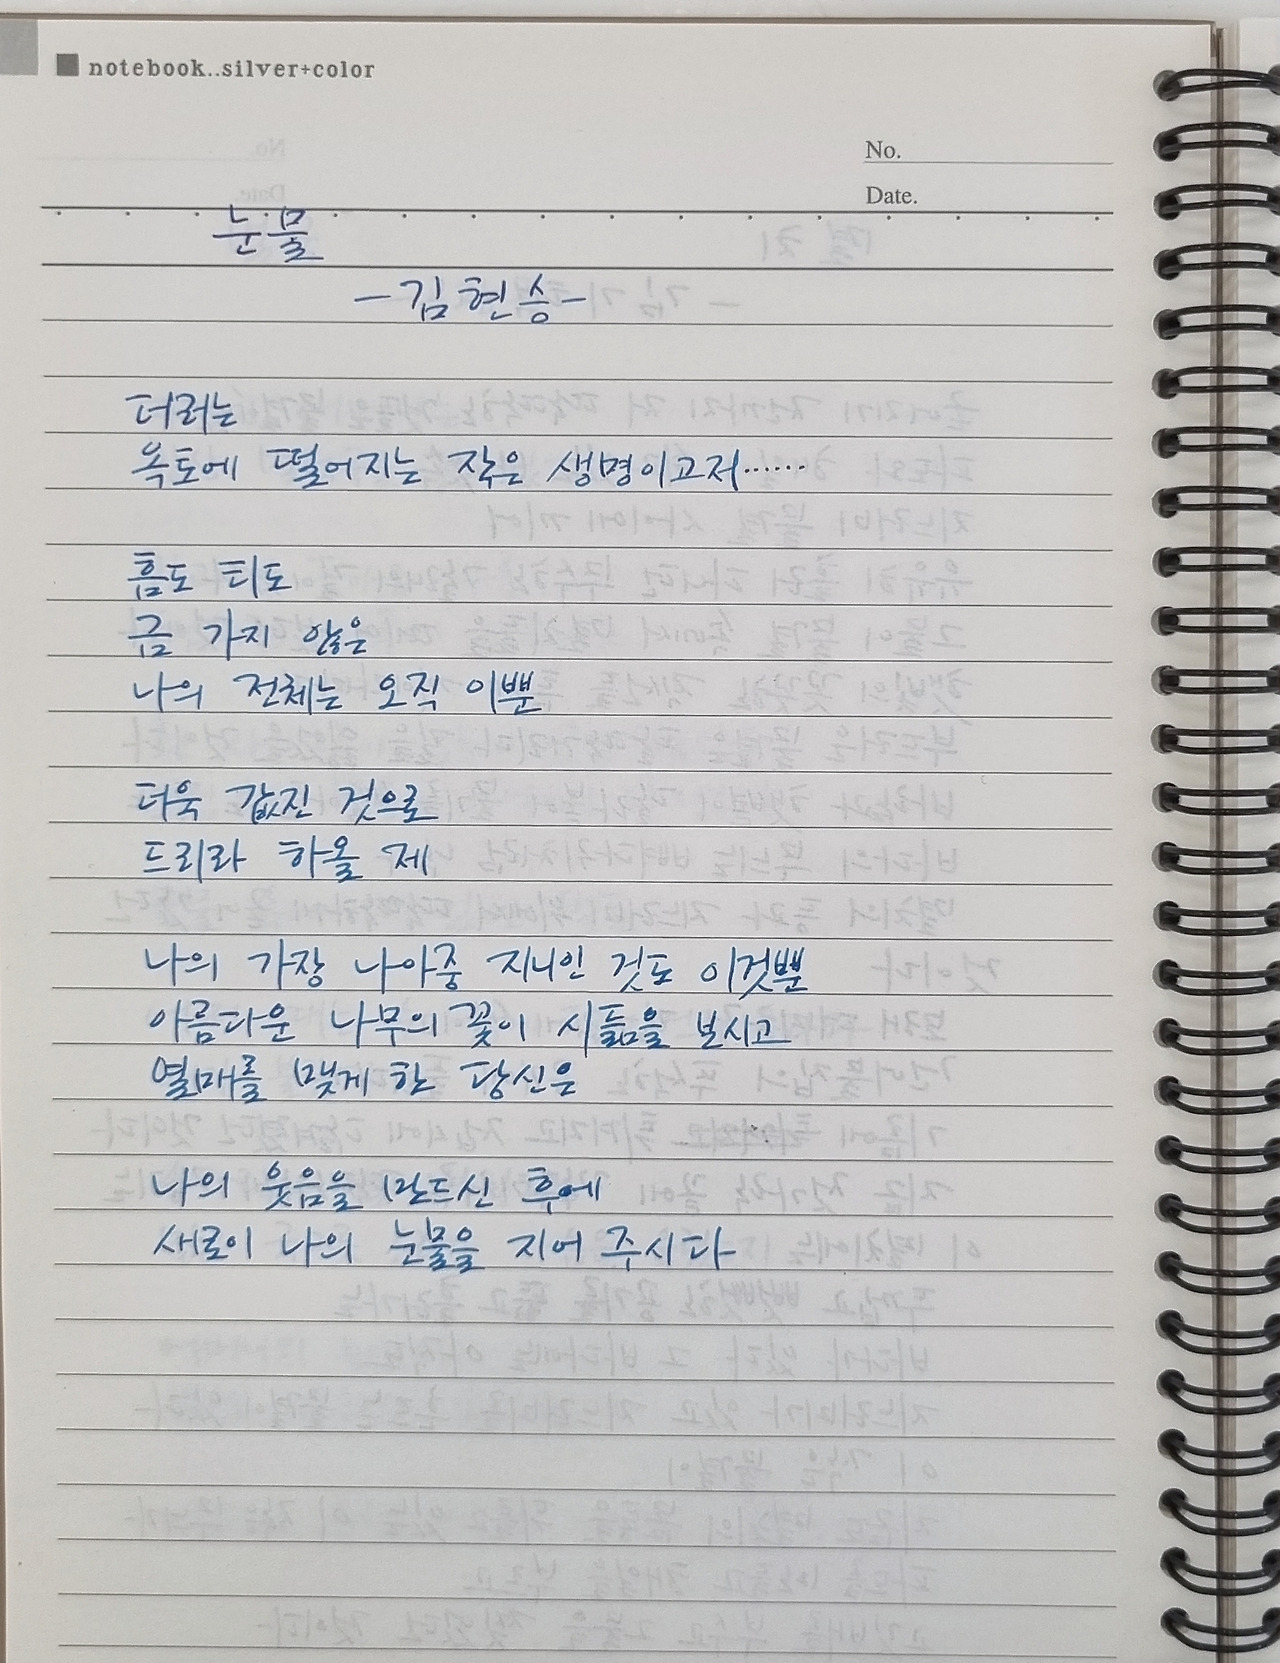 notebook..silver+color
No.
Date.
눈물
-김현승-
더러는
옥토에 떨어지는 작은 생명이고저……
흠도 티도
금 가지 않은
나의 전체는 오직 이뿐
더욱 값진 것으로
드리라 하올 제
나의 가장 나아중 지니인 것도 이것뿐
아름다운 나무의 꽃이 시듦을 보시고
열매를 맺게 한 당신은
나의 웃음을 만드신 후에
새로이 나의 눈물을 지어 주시다